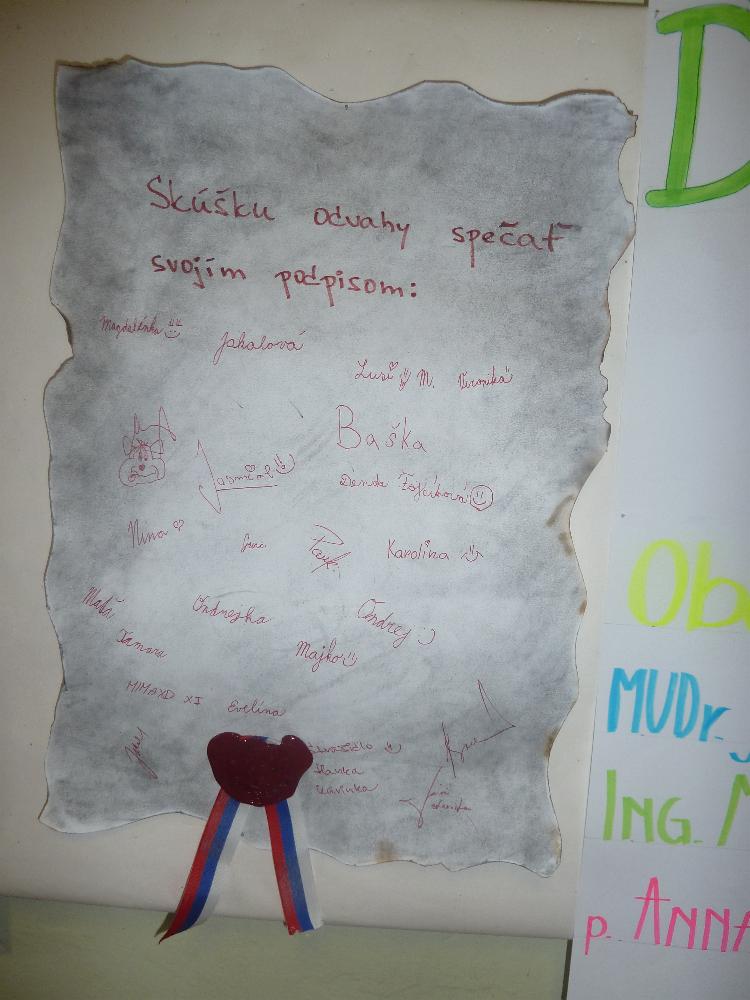 Skúšku odvahy spečať
svojím podpisom:
Magdalénka
Jakalová
Lusi M. Veronika
Baška
Jasmína
Denda
Nina
Jana
Karolína
Maťa
Ondrejka
Ondrej :)
Tamara
Majko
MIMAXD XI
Evelína
Slavka
D
Ob
MUDr. J
ING. M
p. ANNA